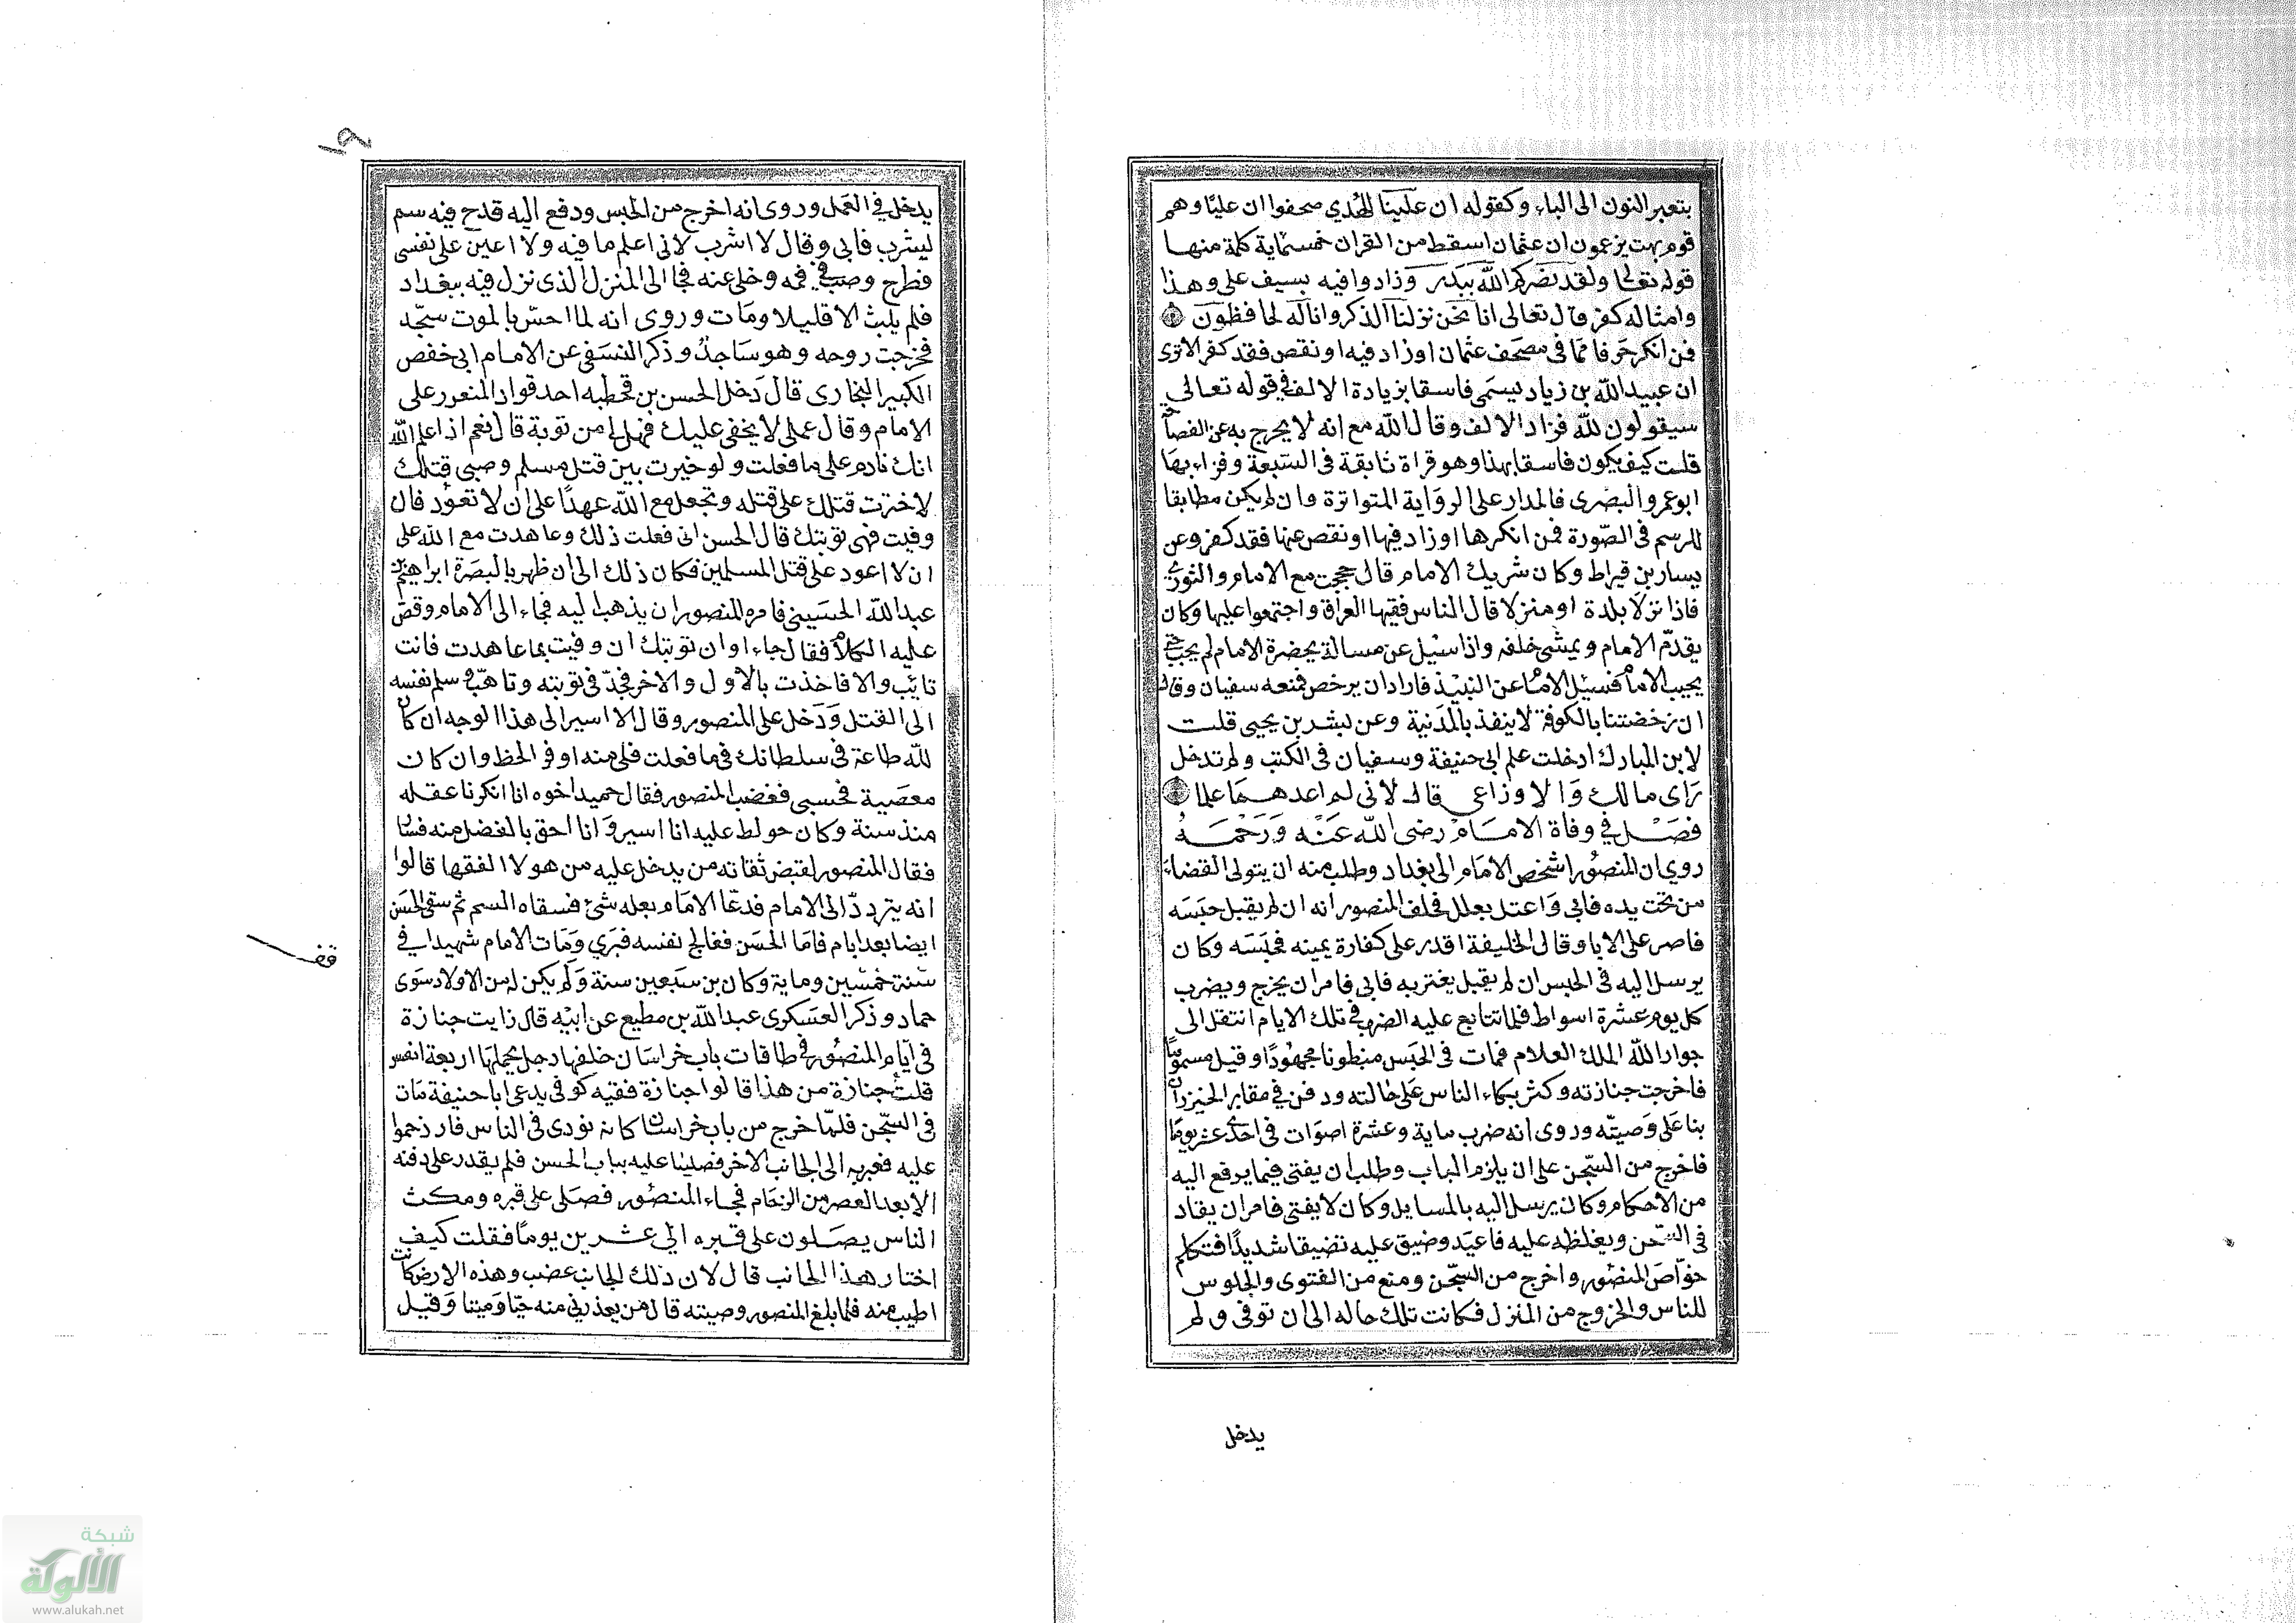 بتعبر النون الى الباء وكقوله ان علينا للهدي صحفوا ان عليا وهم
قوم بهت يزعمون ان عثمان اسقط من القران خمسماية كلمة منها
قوله تعالى ولقد نصركم الله ببدر وزادوا فيه بسيف على وهذا
وامثاله كفر قال تعالى انا نحن نزلنا الذكر وانا له لحافظون
فمن انكر حرفا مما فى مصحف عثمان او زاد فيه او نقص فقد كفر الا ترى
ان عبيد الله بن زياد يسمى فاسقا بزيادة الالف في قوله تعالي
سيقولون لله فزاد الالف وقال الله مع انه لا يخرج به عن الفصا
قلت كيف يكون فاسقا بهذا وهو قراة ثابقة فى السبعة وقراء بها
ابو عمرو البصرى فالمدار على الرواية المتواترة وان لم يكن مطابقا
للرسم فى الصورة فمن انكرها او زاد فيها او نقص عنها فقد كفر وعن
يسار بن قيراط وكان شريك الامام قال حججت مع الامام والثوري
فاذا نزلا بلدة او منزلا قال الناس فقيها العراق واجتمعوا عليها وكان
يقدم الامام ويمشى خلفه واذا سئيل عن مسالة بحضرة الامام لم يجب حتى
يجيب الامام فسئيل الامام عن النبيذ فاراد ان يرخص فمنعه سفيان وقال
ان رخصتنا بالكوفة لا ينفذ بالمدنية وعن بشر بن يحيى قلت
لابن المبارك ادخلت علم ابى حنيفة وسفيان فى الكتب ولم تدخل
راى مالك والاوزاعى قال لانى لم اعدهما علما
فصل في وفاة الامام رضى الله عنه ورحمه
روي ان المنصور اشخص الامام الى بغداد وطلب منه ان يتولى القضاء
من تحت يده فابى واعتل بعلل فحلف المنصور انه ان لم يقبل حبسه
فاصر على الابا وقال الخليفة اقدر على كفارة يمينه فحبسه وكان
يرسل اليه فى الحبس ان لم يقبل يغتر به فابى فامر ان يخرج ويضرب
كل يوم عشرة اسواط فلما تتابع عليه الضرب في تلك الايام انتقل الى
جوار الله الملك العلام فمات فى الحبس منطونا مجهودا وقيل مسموما
فاخرجت جنازته وكثر بكاء الناس على حالته ودفن في مقابر الخيزران
بنا على وصيته وروى انه ضرب ماية وعشرة اصوات فى احد عشر يوما
فاخرج من السجن على ان يلزم الباب وطلب ان يفتى فيما يرفع اليه
من الاحكام وكان يرسل اليه بالمسايل وكان لا يفتى فامر ان يقاد
فى السجن ويغلظه عليه فاعيد وضيق عليه تضيقا شديدا فتكلم
خواص المنصور واخرج من السجن ومنع من الفتوى والجلوس
للناس والخروج من المنزل فكانت تلك حاله الى ان توفى ولم
يدخل
١٩
يدخل في العمل وروى انه اخرج من الحبس ودفع اليه قدح فيه سم
ليشرب فابى وقال لا اشرب لانى اعلم ما فيه ولا اعين على نفسى
فطرح وصب في فمه وخلى عنه فجا الى المنزل الذى نزل فيه ببغداد
فلم يلبث الا قليلا ومات وروى انه لما احس بالموت سجد
فخرجت روحه وهو ساجد وذكر النسفى عن الامام ابى حفص
الكبير البخارى قال دخل الحسن بن قحطبه احد قواد المنصور على
الامام وقال عملى لا يخفى عليك فهل لى من توبة قال نعم اذا علم الله
انك نادم على ما فعلت ولو خيرت بين قتل مسلم وصبى قتلك
لاخترت قتلك على قتله وتجعل مع الله عهدا على ان لا تعود فان
وفيت فهى توبتك قال الحسن انى فعلت ذلك وعاهدت مع الله على
ان لا اعود على قتل المسلمين فكان ذلك الى ان ظهر بالبصرة ابراهيم بن
عبد الله الحسينى فامره المنصور ان يذهب اليه فجاء الى الامام وقص
عليه الكلام فقال جاء اوان توبتك ان وفيت بما عاهدت فانت
تايب والا فاخذت بالاول والاخر فجد فى توبته وتاهب وسلم نفسه
الى القتل ودخل على المنصور وقال لا اسير الى هذا الوجه ان كان
لله طاعة فى سلطانك فى ما فعلت فلى منه اوفر الحظ وان كان
معصية فحسبى فغضب المنصور فقال حميد اخوه انا انكرنا عقله
منذ سنة وكان حولط عليه انا اسير وانا احق بالفضل منه فسار
فقال المنصور لقبض ثقاته من يدخل عليه من هولا الفقها قالوا
انه يتردد الى الامام فدعا الامام بعله شئ فسقاه السم ثم سقى الحسن
ايضا بعد ايام فاما الحسن فعالج نفسه فبري ومات الامام شهيدا في
سنة خمسين وماية وكان بن سبعين سنة ولم يكن له من الاولاد سوى
حماد وذكر العسكرى عبد الله بن مطيع عن ابيه قال رايت جنازة
فى ايام المنصور في طاقات باب خراسان خلفها رجل يحملها اربعة انفس
قلت جنازة من هذا قالوا جنازة فقيه كوفى يدعى ابا حنيفة مات
فى السجن فلما خرج من باب خراسان كانه نودى فى الناس فازدحموا
عليه فعبر به الى الجانب الاخر فصلينا عليه بباب الحسن فلم يقدر على دفنه
الا بعد العصر من الزحام فجاء المنصور فصلى على قبره ومكث
الناس يصلون على قبره الي عشرين يوما فقلت كيف
اختار هذا الجانب قال لان ذلك الجانب غضب وهذه الارض كانت
اطيب منه فلما بلغ المنصور وصيته قال من يعذرني منه حيا وميتا وقيل
قف
شبكة
الألوكة
www.alukah.net